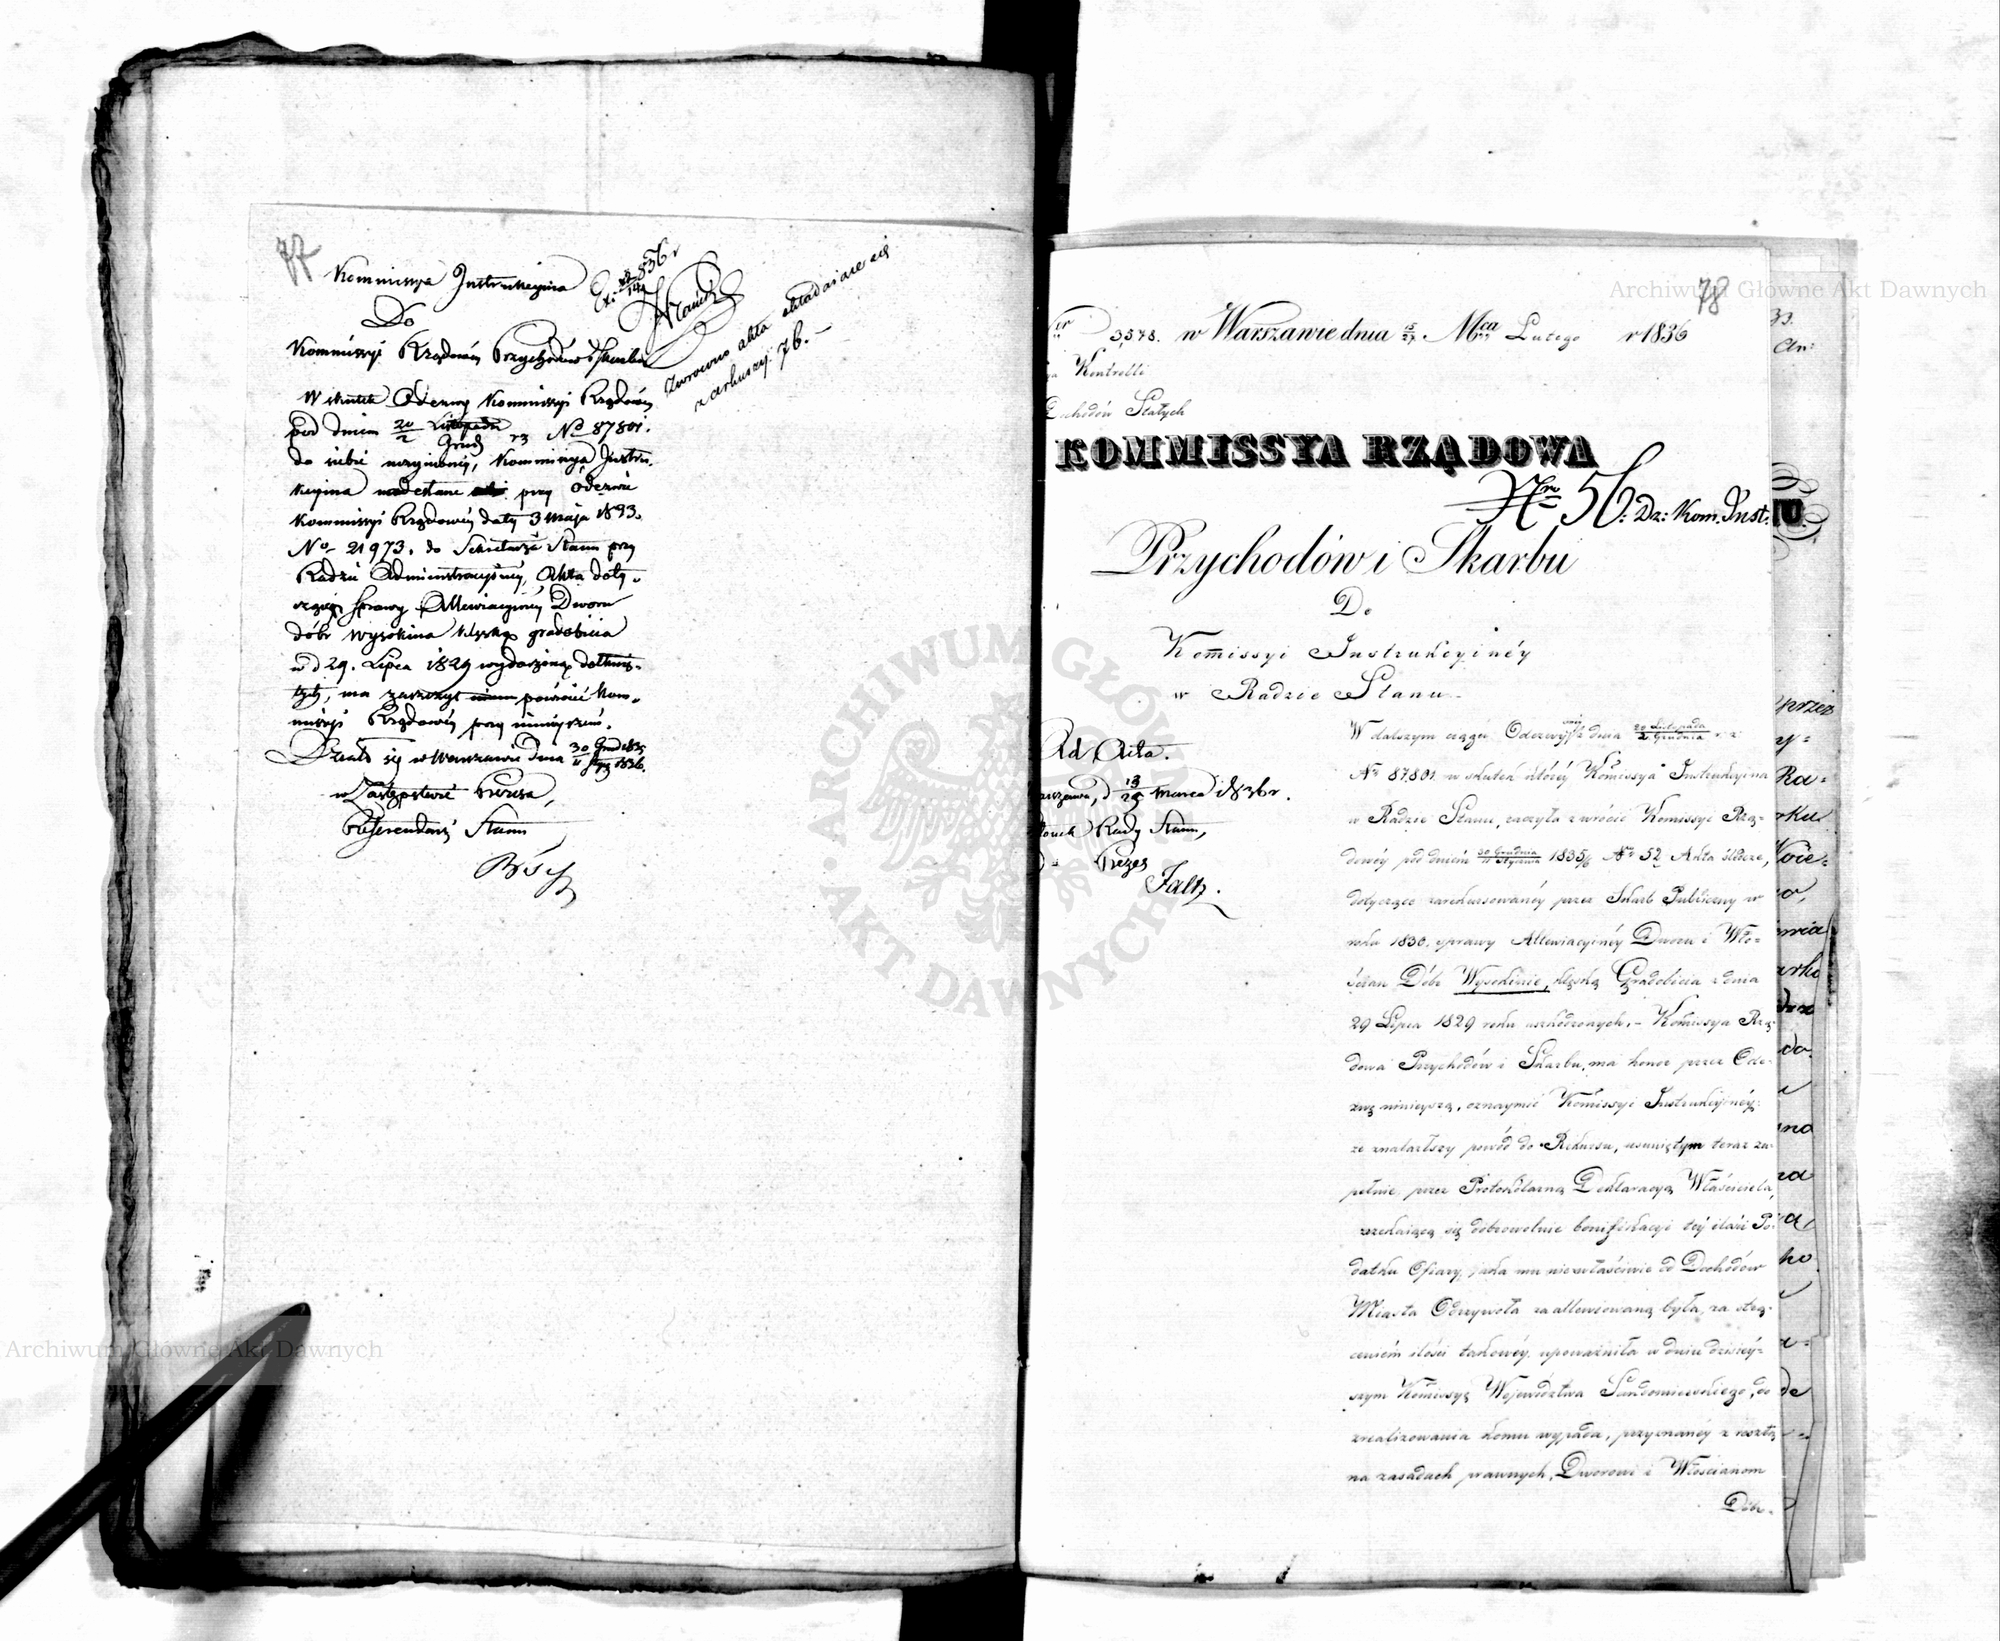 77
Kommissya Instrukcyina
Do
Kommissyi Rządowéy Przychodów i Skarbu
Zwrócono akta składaiące się
z arkuszy 76.
W skutek Odezwy Kommissyi Rządowéy
pod dniem 20/2 Listopada/Grud r z No 87801.
do siebie uczynioney, Kommissya Instru-
kcyina nadesłane przy Odezwie
Kommissyi Rządowéy daty 3 Maja 1833.
No 21973. do Sekretarza Stanu przy
Radzie Administracyjnéy, Akta doty-
czące sprawy Allewiacyinéy Dworu
dóbr Wysokina klęską gradobicia
w d 29. Lipca 1829 wydarzoną dotknię-
tych, ma zaszczyt powrócić Kom-
missyi Rządowéy przy ninieyszem.
Działo się w Warszawie dnia 30 Grud 1835/11 Stycz 1836.
w Zastępstwie Prezesa,
Referendarz Stanu
78
3,578. w Warszawie dnia 15/27 Mca Lutego r 1836
Kontrolli
Dochodów Stałych
KOMMISSYA RZĄDOWA
Nro 56. Dz: Kom. Inst.
Przychodów i Skarbu
Do
Komissyi Instrukcyinéy
w Radzie Stanu
Ad Acta.
13/25 Marca 1836 r.
Rady Stanu,
Prezes
Falz.
W dalszym ciągu Odezwy z dnia 20 Listopada/2 Grudnia r. z.
No 87,801. w skutek któréy Komissya Instrukcyina
w Radzie Stanu, raczyła zwrócić Komissyi Rzą-
dowéy pod dniem 30 Grudnia/11 Stycznia 1835/6 No 52 Akta ślżące,
dotyczące zarekursowanéy przez Skarb Publiczny w
roku 1830. sprawy Allewiacyinéy Dworu i Wło-
ścian Dóbr Wysokinie, klęską Gradobicia z dnia
29 Lipca 1829 roku uszkodzonych, – Komissya Rzą-
dowa Przychodów i Skarbu, ma honor przez Ode-
zwę ninieyszą, oznaymić Komissyi Instrukcyinéy:
że znalazłszy powód do Rekursu, usuniętym teraz zu-
pełnie przez Protokólarną Deklaracyą Właściciela,
zrzekaiącą się dobrowolnie bonifikacyi téy ilości Po-
datku Ofiary, jaka mu niewłaściwie od Dochodów
Miasta Odrzywoła zaallewiowaną była, za strą-
ceniem ilości takowéy, upoważniła w dniu dzisiéy-
szym Komissyą Województwa Sandomierskiego, do
zrealizowania komu wypada, przyznanéy z resztą
na zasadach prawnych, Dworowi i Włościanom
Dóbr